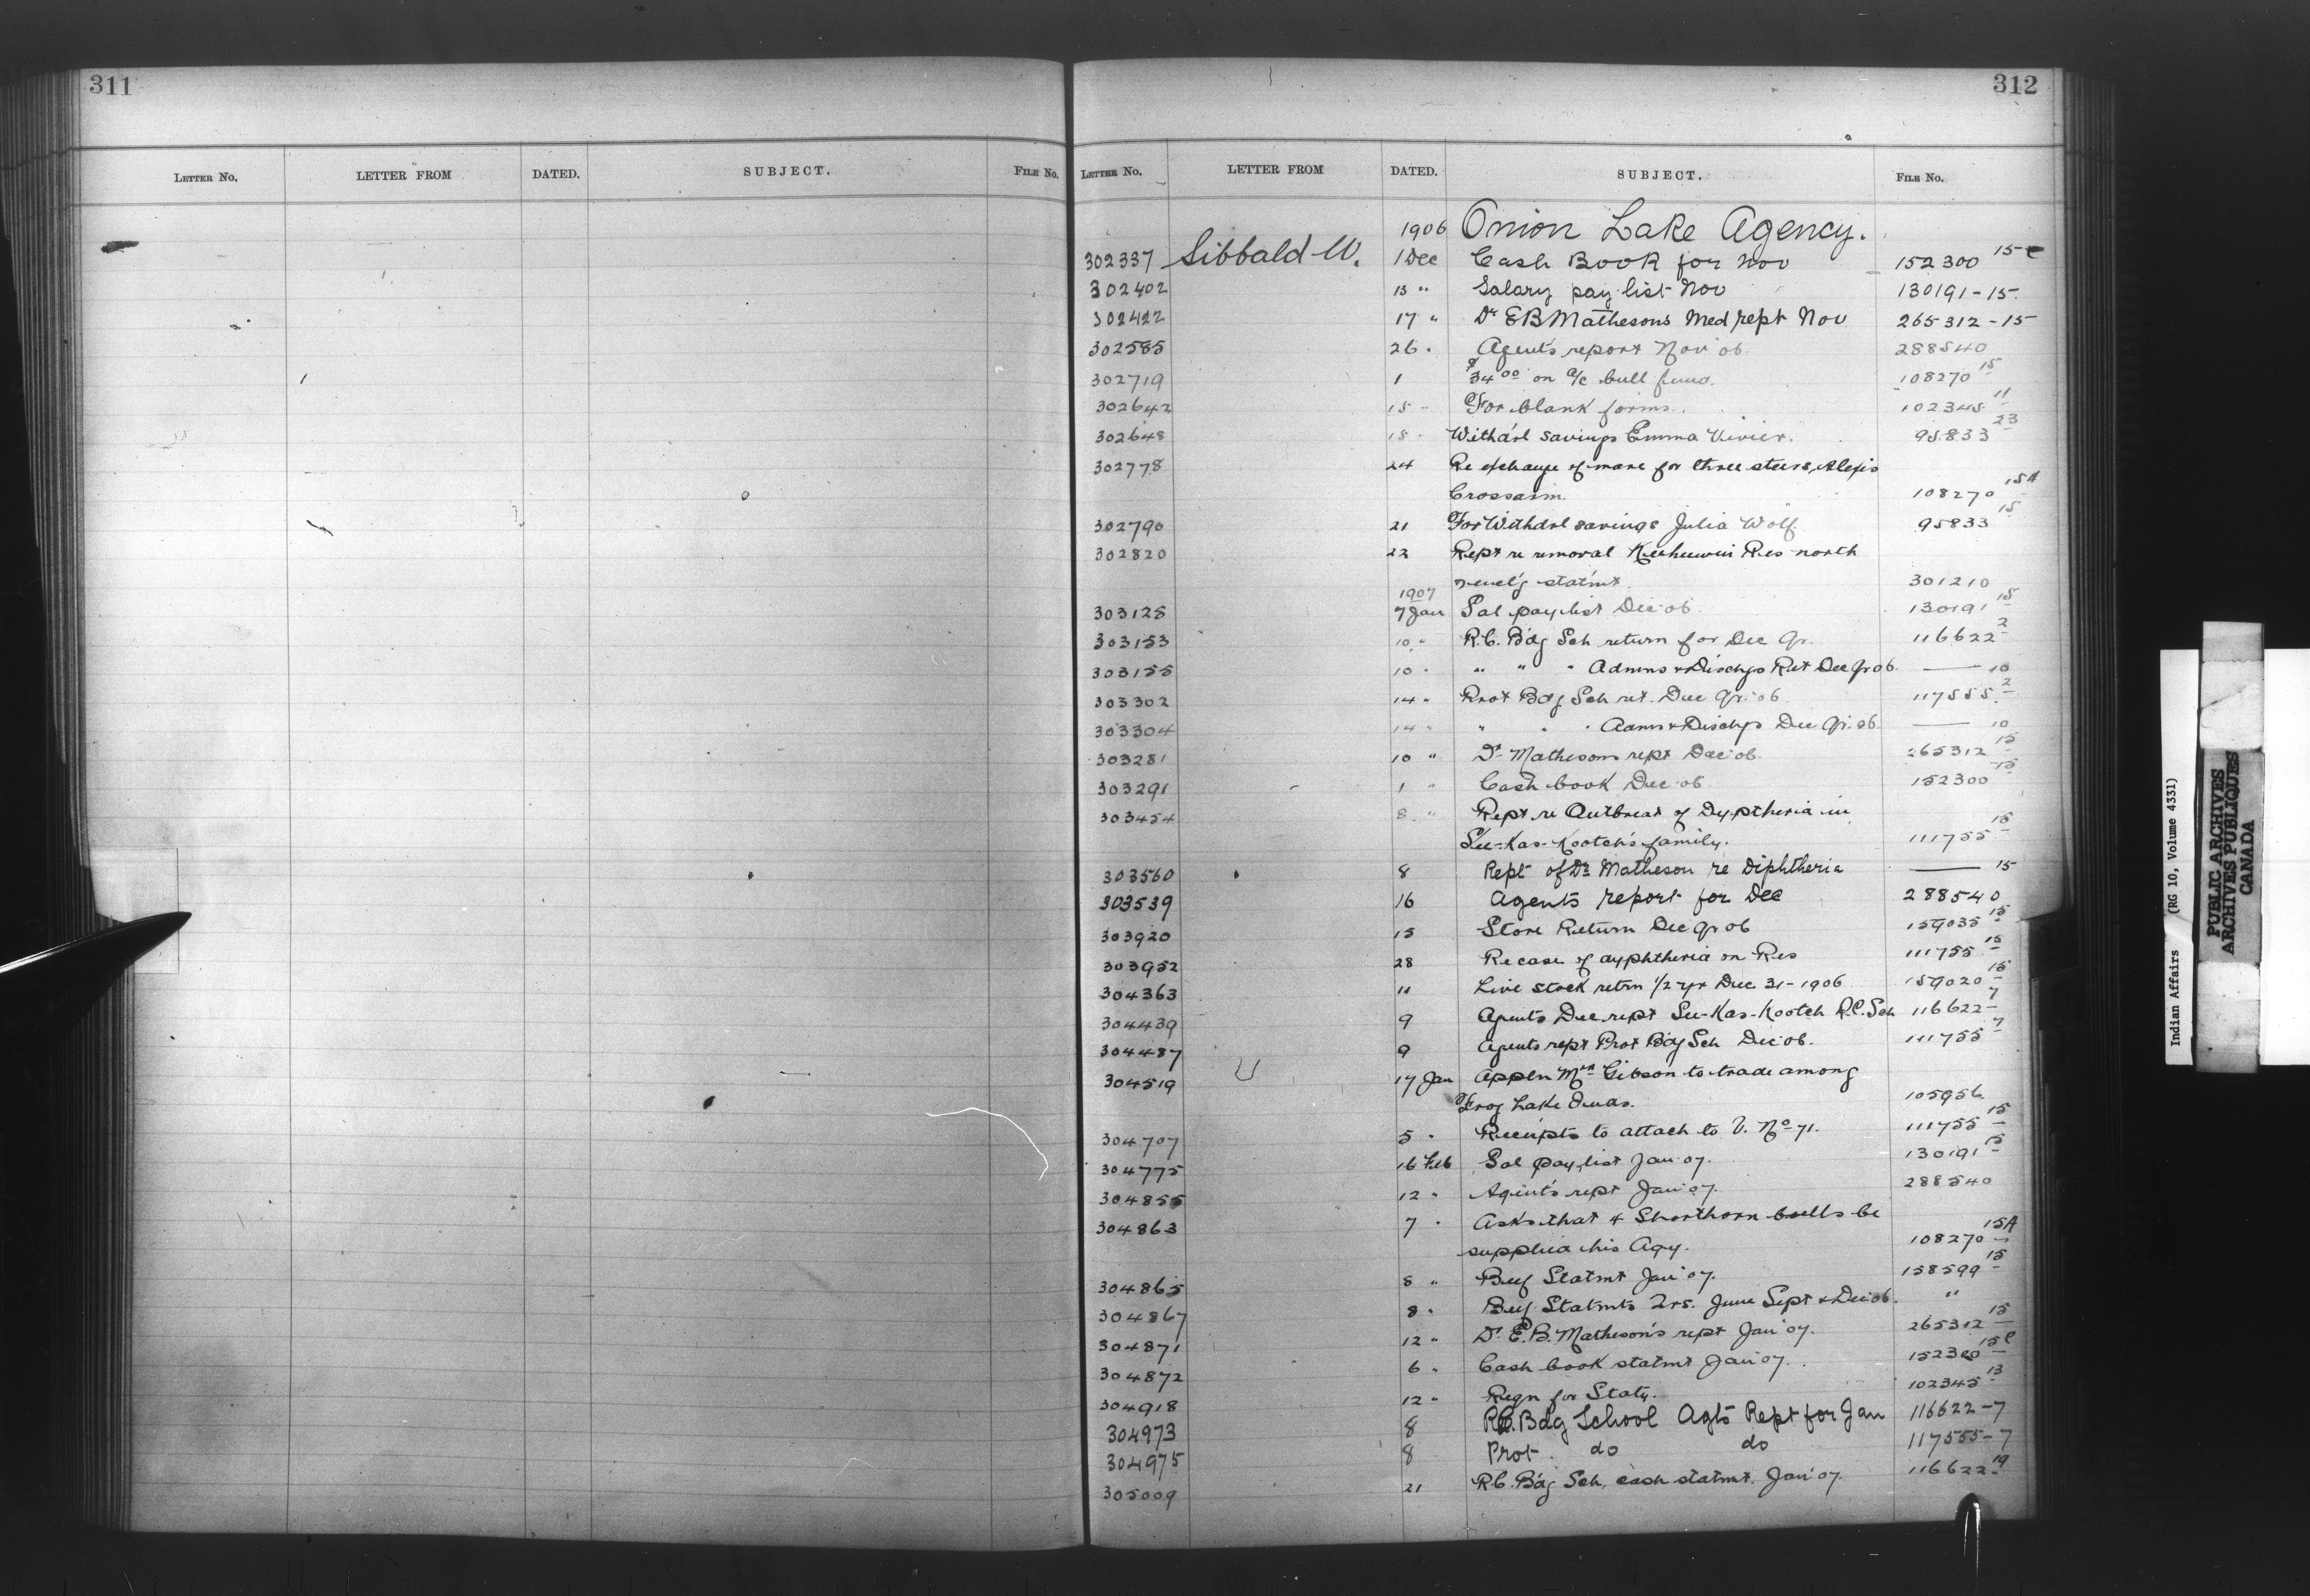 311
312
LETTER NO. LETTER FROM DATED. SUBJECT. FILE NO.
LETTER NO. LETTER FROM DATED. SUBJECT. FILE NO.
1906 Onion Lake Agency.
302337 Sibbald W. 1 Dec Cash Book for Nov 152300 15-c
302402 13 " Salary pay list Nov 130191-15
302422 17 " Dr EB Matheson's Med rept Nov 265312-15
302585 26 " Agent's report Nov 06. 288540
302719 1 $34 00 on a/c bull fund. 108270 15
302642 15 " For blank forms. 102345 11
302648 18 " Withd'l savings Emma Vivier. 95833 23
302778 24 Re exchange of mare for three steers, Alexis
Crossarm. 108270 15A
302790 21 For Withdrl savings Julia Wolf. 95833 15
302820 22 Rept re removal Keeheewin Res north
statmt. 301210
1907
303125 7 Jan Sal pay list Dec 06. 130191 15
303153 10 " R.C. B'dg Sch return for Dec Qr. 116622 2
303155 10 " " " " Admns & Dischgs Ret Dec Qr 06. — 10
303302 14 " Prot Bdg Sch ret. Dec Qr. 06 117555 2
303304 14 " " " " Admns & Dischgs Dec Qr. 06. — 10
303281 10 " Dr Mathesons rept Dec 06. 265312 15
303291 1 " Cash book Dec 06. 152300 15
303454 8 " Rept re Outbreak of Dyptheria in
See-Kas-Kootch's family. 111755 15
303560 8 Rept of Dr Matheson re Diphtheria — 15
303539 16 Agents report for Dec 288540
303920 15 Store Return Dec Qr 06 159035 15
303952 28 Re case of dyphtheria on Res 111755 15
304363 11 Live stock retrn 1/2 yr Dec 31-1906 159020 15
304439 9 Agents Dec rept See-Kas-Kootch R.C. Sch 116622 7
304487 9 Agents rept Prot B'dg Sch Dec 06. 111755 7
304519 17 Jan Appln Mrs Gibson to trade among
Frog Lake Inds. 105956
304707 5 " Receipts to attach to V. No 71. 111755 15
304775 16 Feb Sal pay list Jan 07. 130191 15
304855 12 " Agent's rept Jan 07. 288540
304863 7 " Asks that 4 Shorthorn bulls be
supplied his Agy. 108270 15A
304865 8 " Beef Statmt Jan 07. 158599 15
304867 8 " Beef Statmts Qrs. June Sept & Dec 06. "
304871 12 " Dr E.B. Matheson's rept Jan 07. 265312 15
304872 6 " Cash book statmt Jan 07. 152300 15c
304918 12 " Reqn for Staty. 102345 13
304973 8 R.C. Bdg School Agts Rept for Jan 116622-7
304975 8 Prot do do 117555-7
305009 21 R.C. B'dg Sch, cash statmt. Jan 07. 116622 19
Indian Affairs (RG 10, Volume 4331)
PUBLIC ARCHIVES
ARCHIVES PUBLIQUES
CANADA